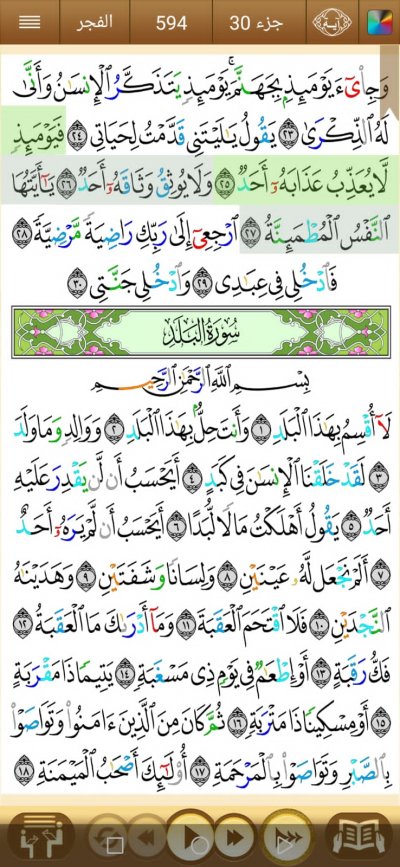 الفجر 594 جزء 30 آية
وَجِا۟ىٓءَ يَوْمَئِذِۭ بِجَهَنَّمَ ۚ يَوْمَئِذٍ يَتَذَكَّرُ ٱلْإِنسَٰنُ وَأَنَّىٰ
لَهُ ٱلذِّكْرَىٰ ٢٣ يَقُولُ يَٰلَيْتَنِى قَدَّمْتُ لِحَيَاتِى ٢٤ فَيَوْمَئِذٍ
لَّا يُعَذِّبُ عَذَابَهُۥٓ أَحَدٌ ٢٥ وَلَا يُوثِقُ وَثَاقَهُۥٓ أَحَدٌ ٢٦ يَٰٓأَيَّتُهَا
ٱلنَّفْسُ ٱلْمُطْمَئِنَّةُ ٢٧ ٱرْجِعِىٓ إِلَىٰ رَبِّكِ رَاضِيَةً مَّرْضِيَّةً ٢٨
فَٱدْخُلِى فِى عِبَٰدِى ٢٩ وَٱدْخُلِى جَنَّتِى ٣٠
سُورَةُ الْبَلَدِ
بِسْمِ ٱللَّهِ ٱلرَّحْمَٰنِ ٱلرَّحِيمِ
لَآ أُقْسِمُ بِهَٰذَا ٱلْبَلَدِ ١ وَأَنتَ حِلٌّۢ بِهَٰذَا ٱلْبَلَدِ ٢ وَوَالِدٍ وَمَا وَلَدَ
٣ لَقَدْ خَلَقْنَا ٱلْإِنسَٰنَ فِى كَبَدٍ ٤ أَيَحْسَبُ أَن لَّن يَقْدِرَ عَلَيْهِ
أَحَدٌ ٥ يَقُولُ أَهْلَكْتُ مَالًا لُّبَدًا ٦ أَيَحْسَبُ أَن لَّمْ يَرَهُۥٓ أَحَدٌ
٧ أَلَمْ نَجْعَل لَّهُۥ عَيْنَيْنِ ٨ وَلِسَانًا وَشَفَتَيْنِ ٩ وَهَدَيْنَٰهُ
ٱلنَّجْدَيْنِ ١٠ فَلَا ٱقْتَحَمَ ٱلْعَقَبَةَ ١١ وَمَآ أَدْرَىٰكَ مَا ٱلْعَقَبَةُ ١٢
فَكُّ رَقَبَةٍ ١٣ أَوْ إِطْعَٰمٌ فِى يَوْمٍ ذِى مَسْغَبَةٍ ١٤ يَتِيمًا ذَا مَقْرَبَةٍ
١٥ أَوْ مِسْكِينًا ذَا مَتْرَبَةٍ ١٦ ثُمَّ كَانَ مِنَ ٱلَّذِينَ ءَامَنُوا۟ وَتَوَاصَوْا۟
بِٱلصَّبْرِ وَتَوَاصَوْا۟ بِٱلْمَرْحَمَةِ ١٧ أُو۟لَٰٓئِكَ أَصْحَٰبُ ٱلْمَيْمَنَةِ ١٨